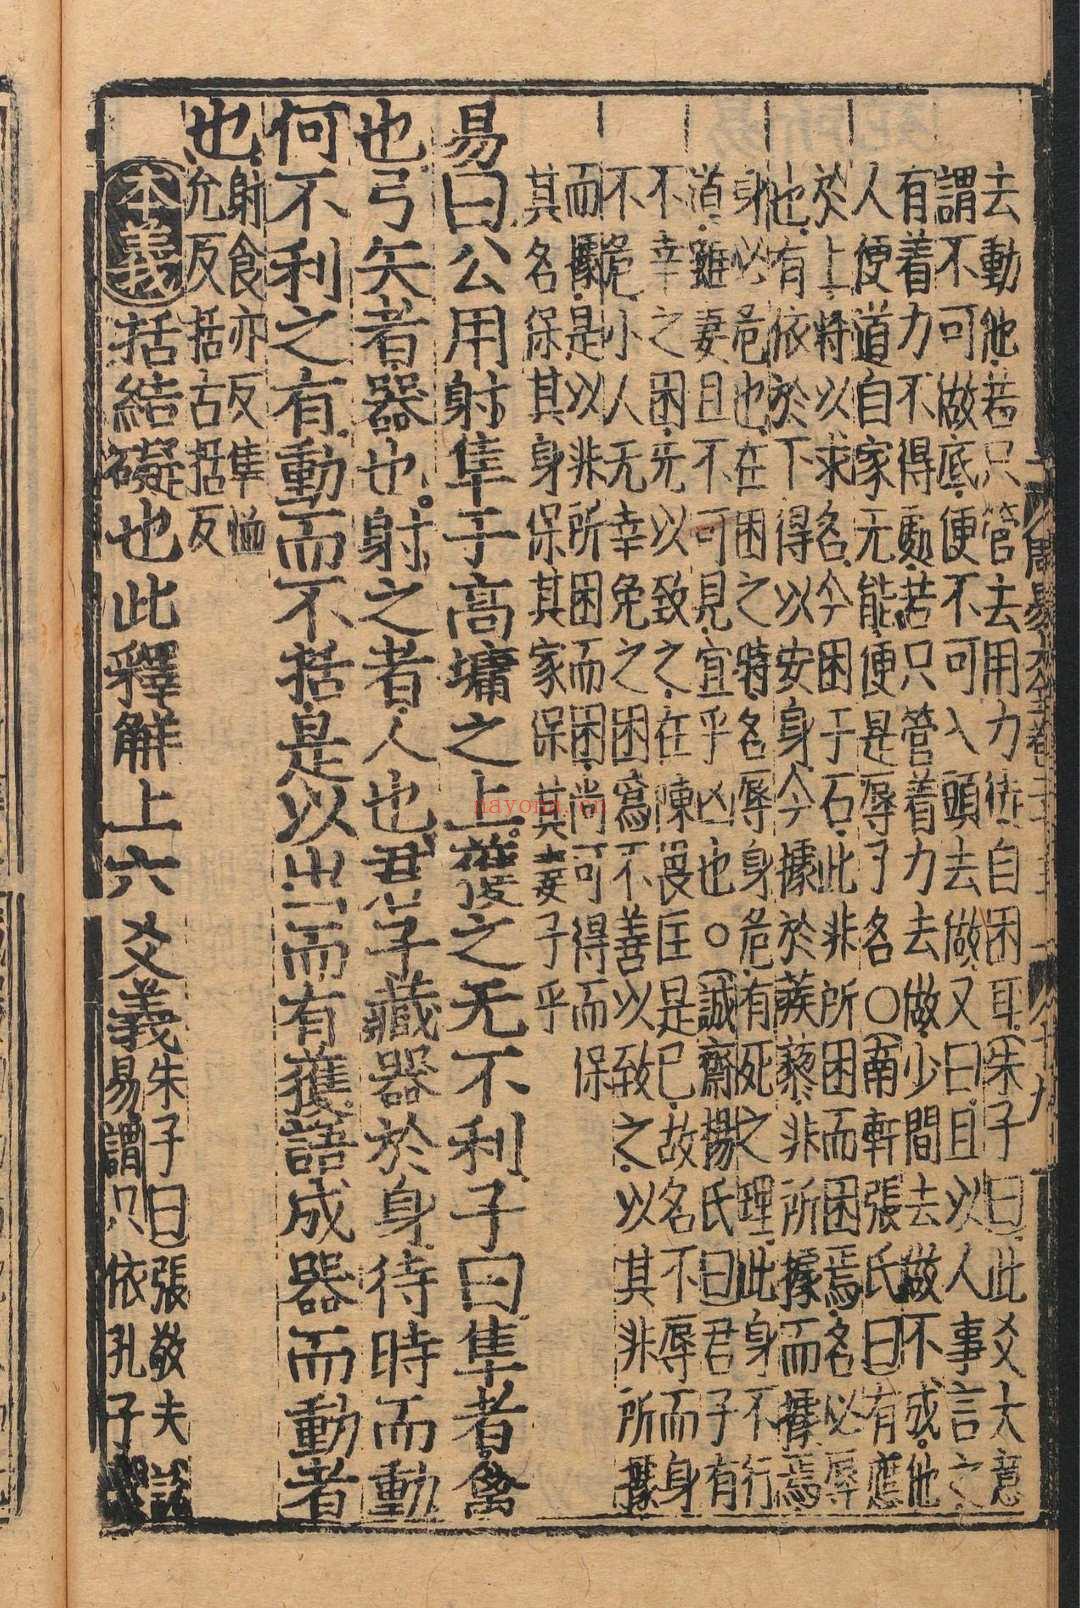 去動他若只管去用力徒自困耳朱子曰此爻大意
謂不可做底便不可入頭去做又曰且以人事言之
有着力不得處若只管着力去做少間去做不成他
人便道自家无能便是辱了名○南軒張氏曰有應
於上將以求名今困于石此非所困而困焉名必辱
也有依於下得以安身今據於蒺藜非所據而據焉
身必危也在困之時名辱身危有死之理此身不行
道雖妻且不可見宜乎凶也○誠齋楊氏曰君子有
不幸之困无以致之在陳畏匡是已故名不辱而身
不危小人无幸免之困爲不善以致之以其非所據
而據是以非所困而困尚可得而保
其名保其身保其家保其妻子乎
易曰公用射隼于高墉之上獲之无不利子曰隼者禽
也弓矢者器也射之者人也君子藏器於身待時而動
何不利之有動而不括是以出而有獲語成器而動者
也
射食亦反隼恤
允反括古括反
本義括結礙也此釋解上六爻義
朱子曰張敬夫説
易謂只依孔子
周易
十九
nayona.cn